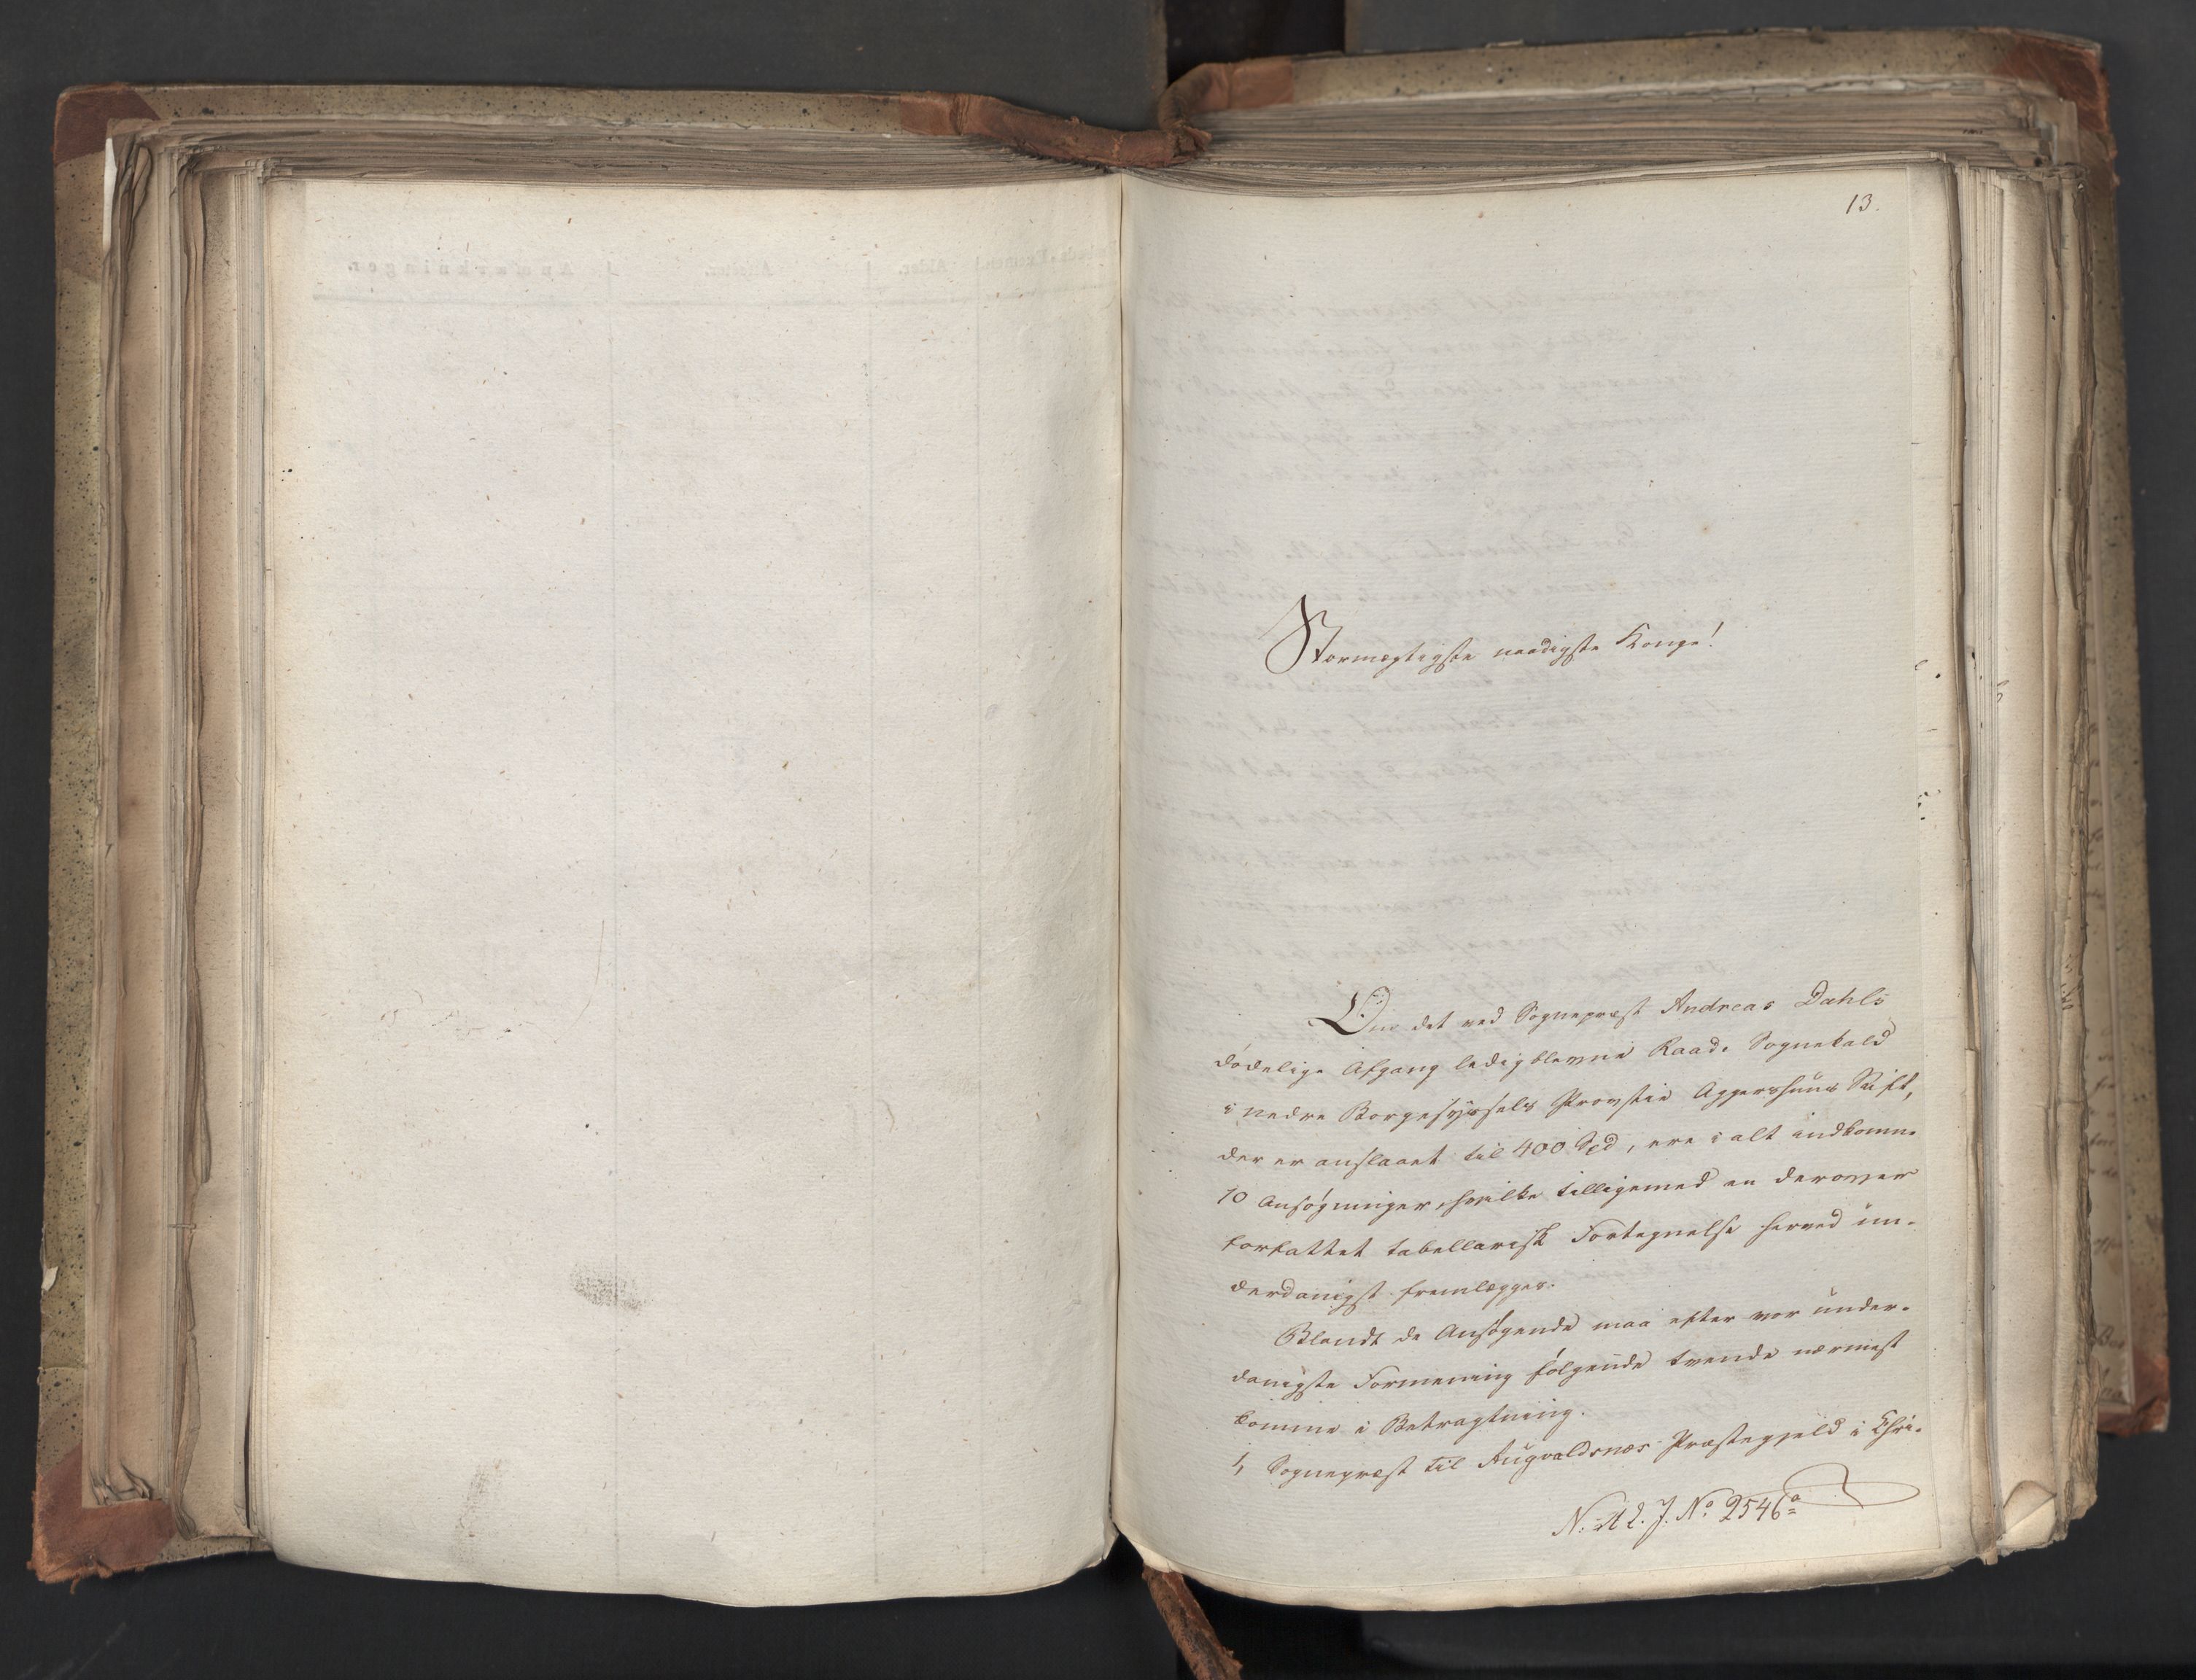 13.
Stormægtigste naadigste Konge!
Om det ved Sognepræst Andreas Dahls
dødelige Afgang ledigblevne Raade Sognekald
i nedre Borgesyssels Provstie Aggershuus Stift,
der er anslaaet til 400 Spd, ere i alt indkomne
10 Ansøgninger, hvilke tilligemed en derover
forfattet tabellarisk Fortegnelse herved un-
derdanigst fremlægges.
Blandt de Ansøgende maa efter vor under-
danigste Formening følgende tvende nærmest
komme i Betragtning.
1, Sognepræst til Augvaldsnæs Præstegjeld i Chri-
N: A 2. J. No 2546a